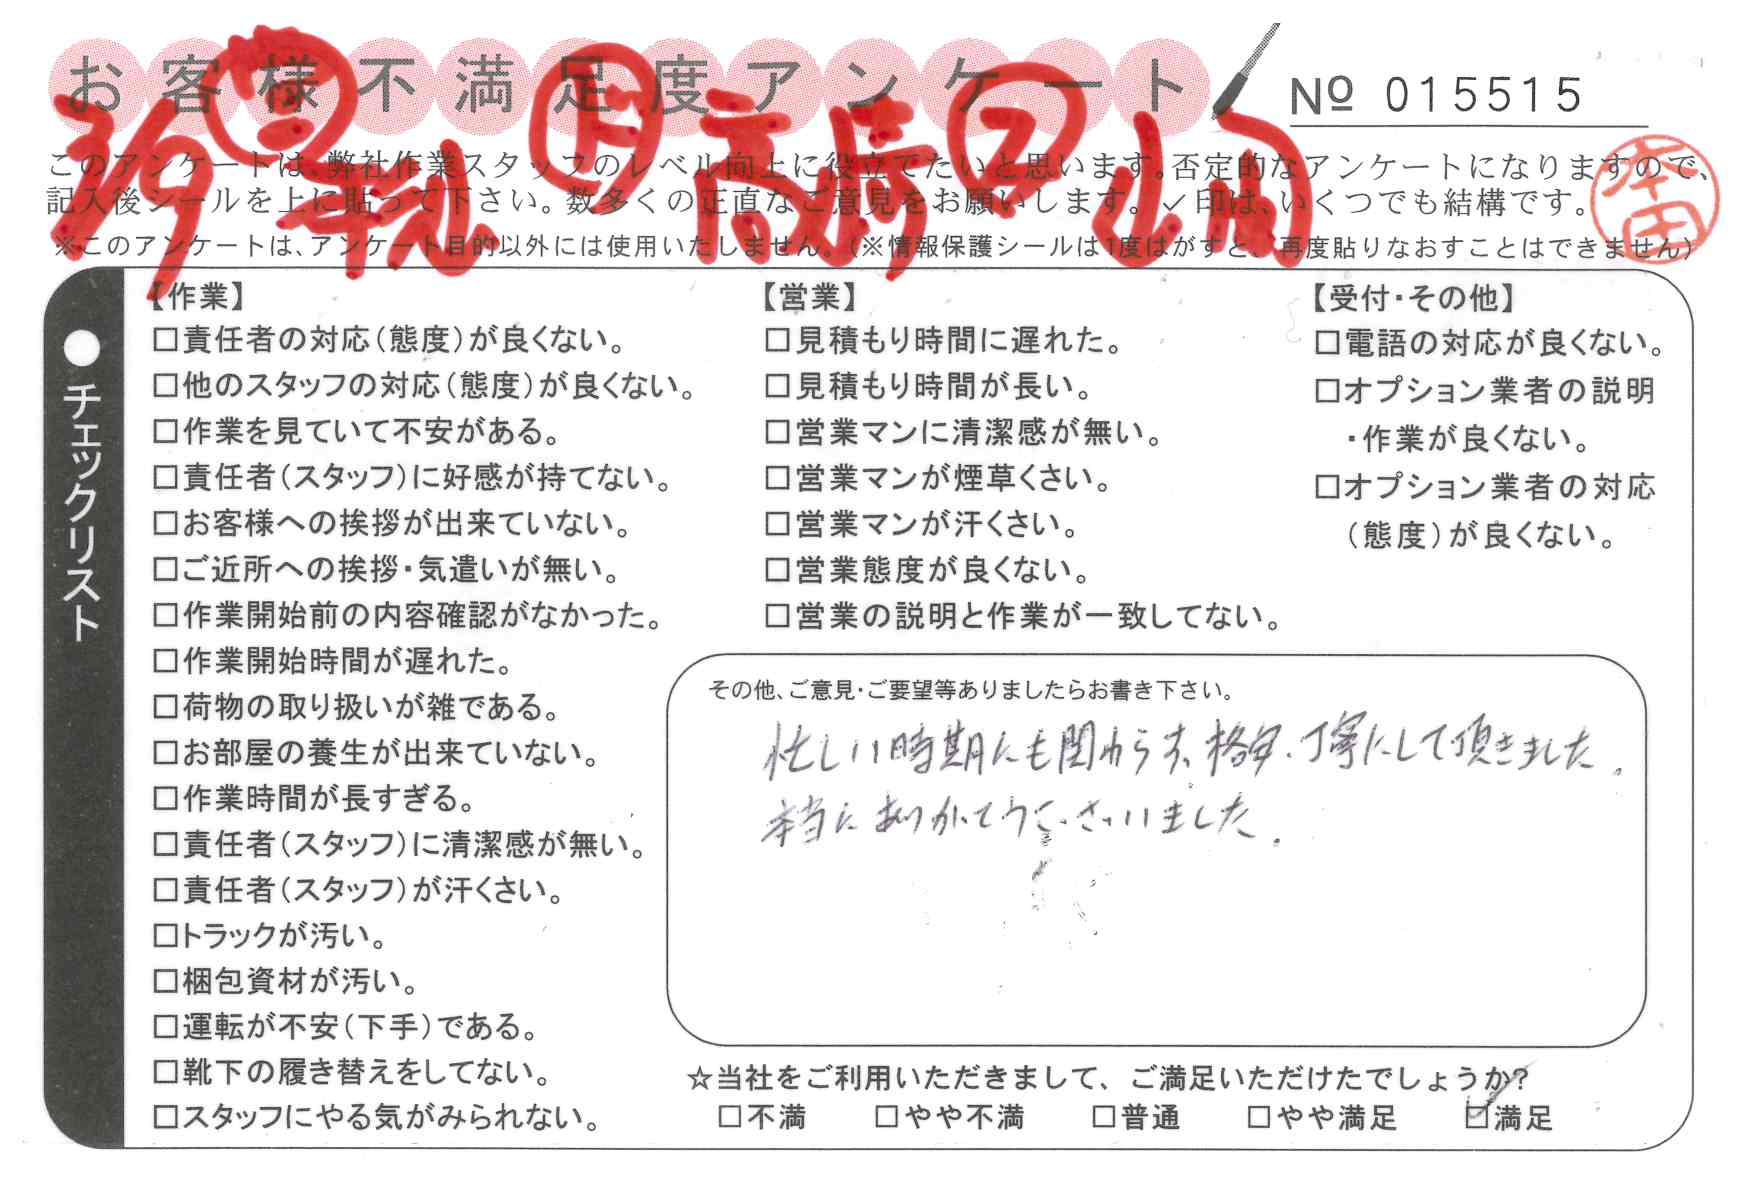 お客様不満足度アンケート
№ 015515
このアンケートは、弊社作業スタッフのレベル向上に役立てたいと思います。否定的なアンケートになりますので、
記入後シールを上に貼って下さい。数多くの正直なご意見をお願いします。✓印は、いくつでも結構です。
※このアンケートは、アンケート目的以外には使用いたしません。(※情報保護シールは1度はがすと、再度貼りなおすことはできません)
本田
●チェックリスト
【作業】
□責任者の対応(態度)が良くない。
□他のスタッフの対応(態度)が良くない。
□作業を見ていて不安がある。
□責任者(スタッフ)に好感が持てない。
□お客様への挨拶が出来ていない。
□ご近所への挨拶・気遣いが無い。
□作業開始前の内容確認がなかった。
□作業開始時間が遅れた。
□荷物の取り扱いが雑である。
□お部屋の養生が出来ていない。
□作業時間が長すぎる。
□責任者(スタッフ)に清潔感が無い。
□責任者(スタッフ)が汗くさい。
□トラックが汚い。
□梱包資材が汚い。
□運転が不安(下手)である。
□靴下の履き替えをしてない。
□スタッフにやる気がみられない。
【営業】
□見積もり時間に遅れた。
□見積もり時間が長い。
□営業マンに清潔感が無い。
□営業マンが煙草くさい。
□営業マンが汗くさい。
□営業態度が良くない。
□営業の説明と作業が一致してない。
【受付・その他】
□電話の対応が良くない。
□オプション業者の説明
・作業が良くない。
□オプション業者の対応
(態度)が良くない。
その他、ご意見・ご要望等ありましたらお書き下さい。
忙しい時期にも関わらず、格安、丁寧にして頂きました。
本当にありがとうございました。
☆当社をご利用いただきまして、ご満足いただけたでしょうか?
□不満 □やや不満 □普通 □やや満足 ☑満足